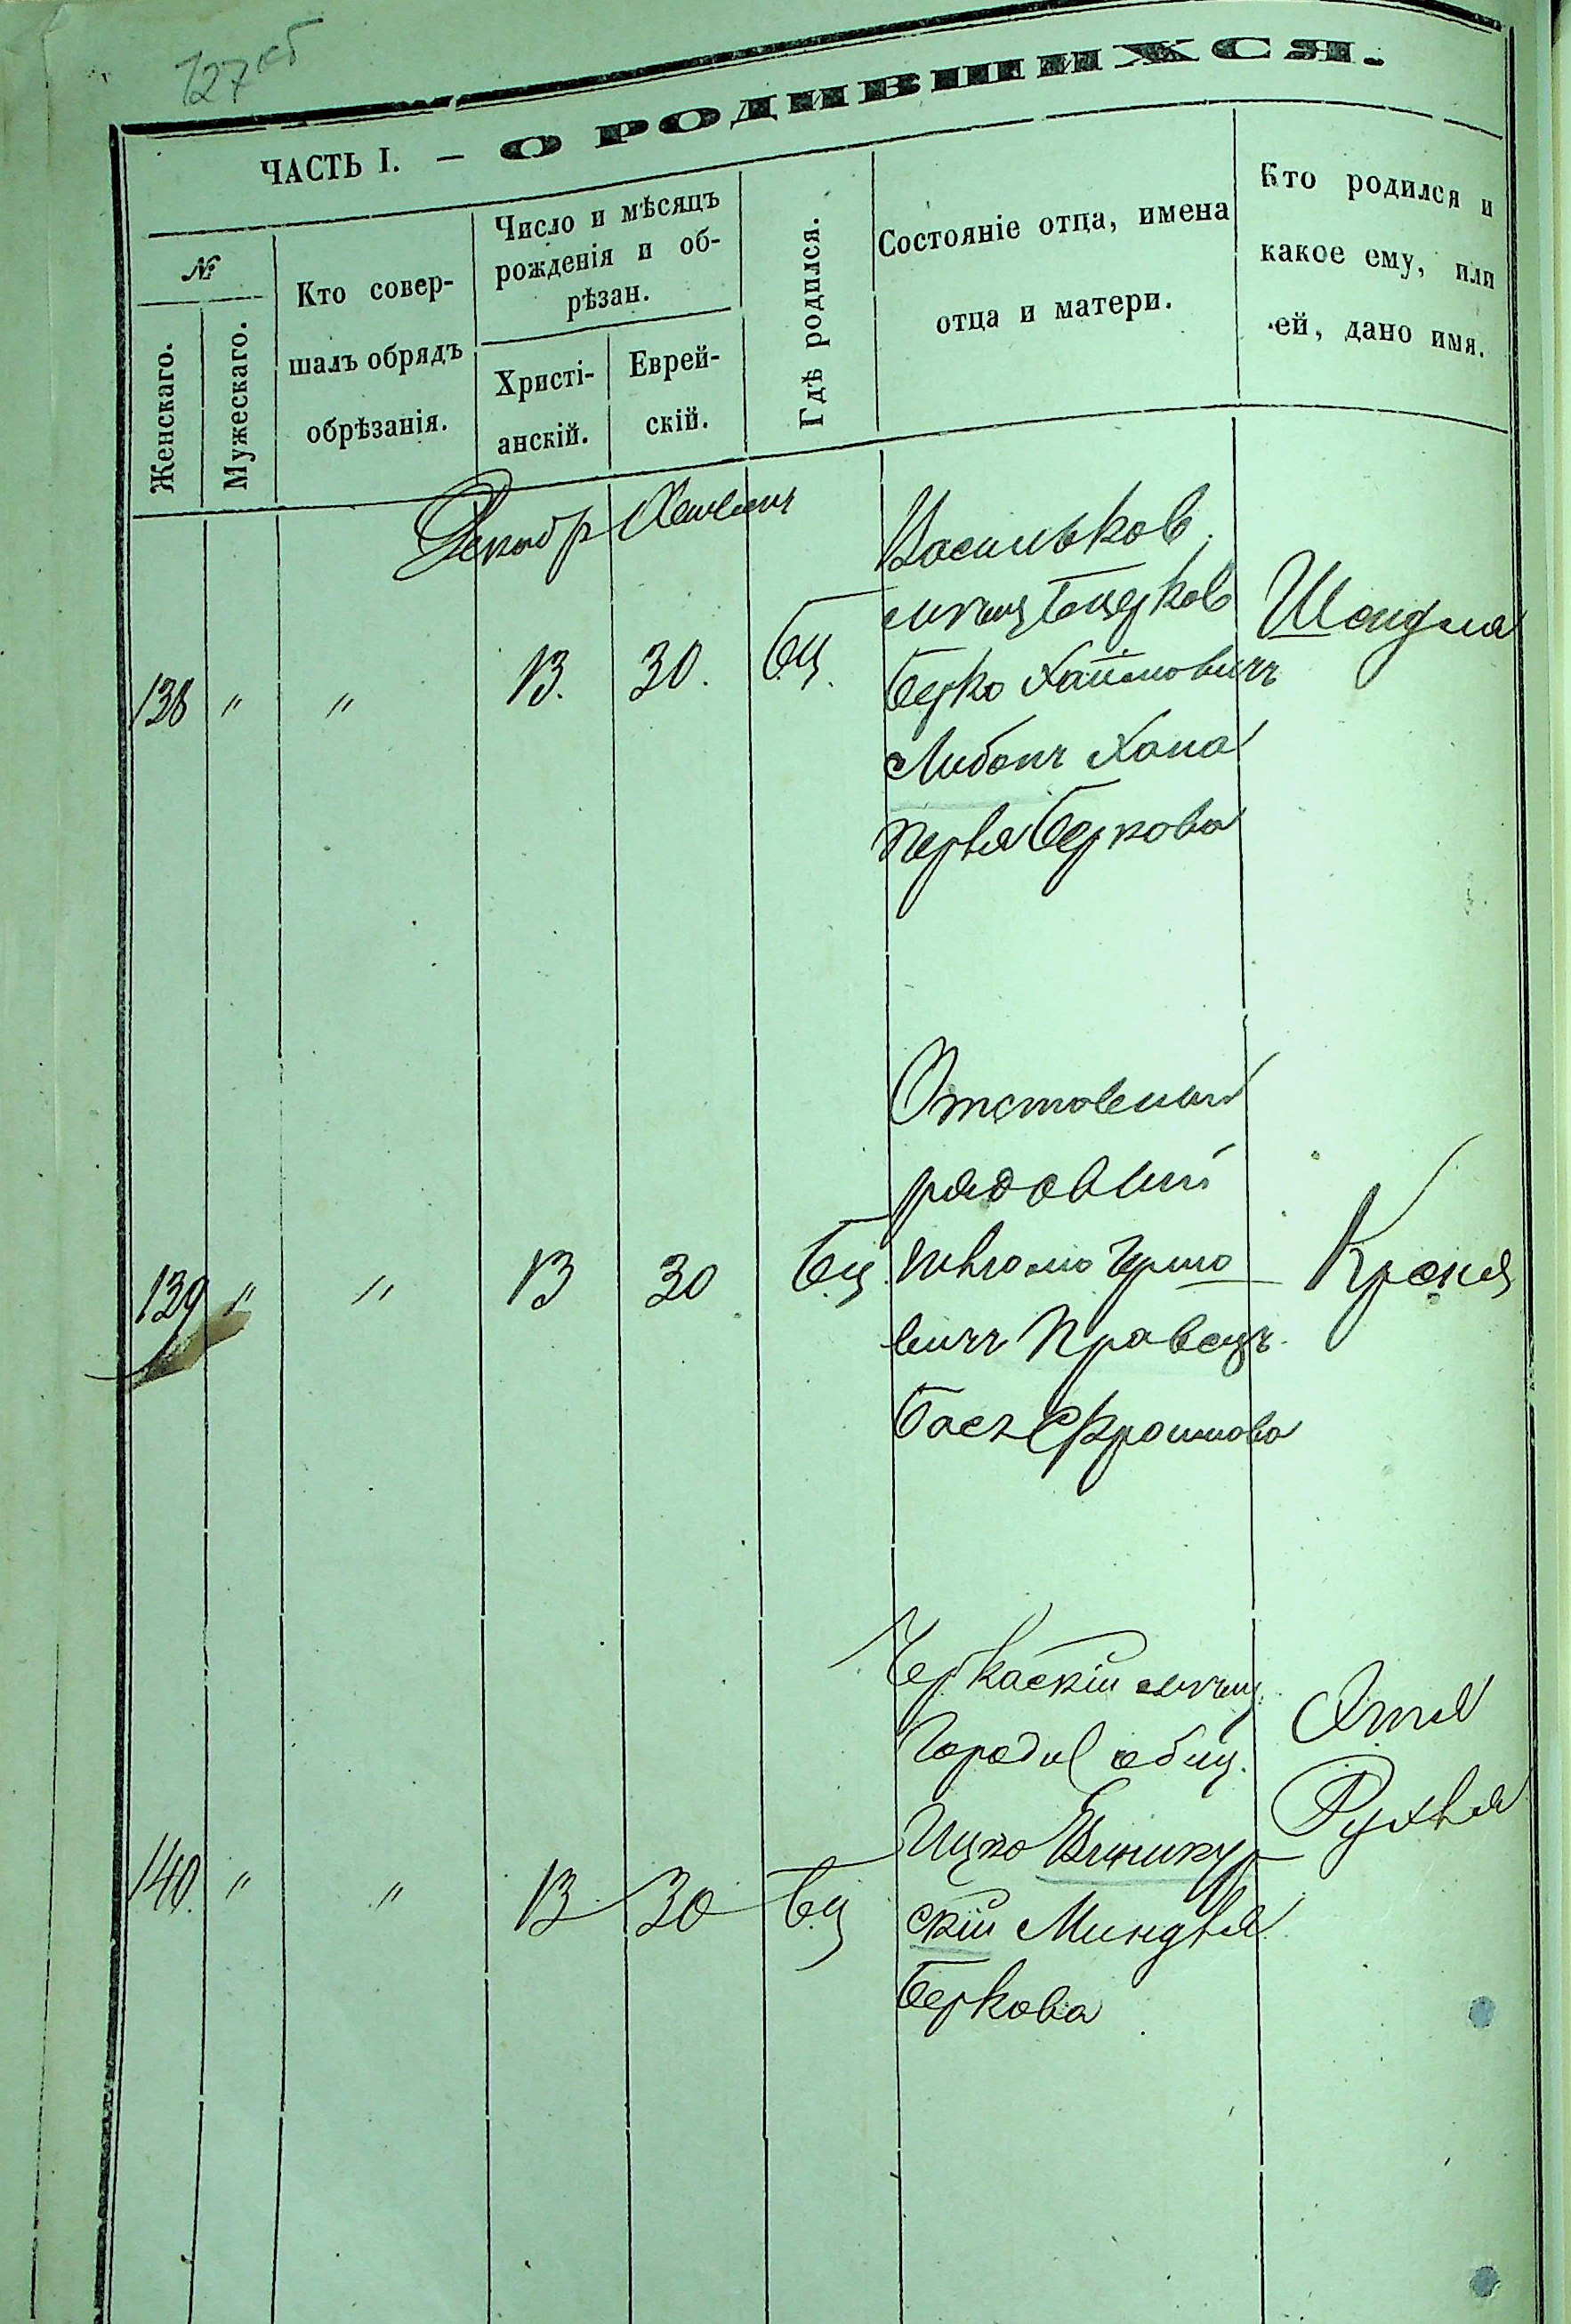 127об
ЧАСТЬ I. — О РОДИВШИХСЯ.
№
Женскаго.
Мужескаго.
Кто совер-
шалъ обрядъ
обрѣзанія.
Число и мѣсяцъ
рожденія и об-
рѣзан.
Христі-
анскій.
Еврей-
скій.
Гдѣ родился.
Состояніе отца, имена
отца и матери.
Кто родился и
какое ему, или
ей, дано имя.
Декабр
138 " " 13. 30. бц.
Васильков.
Берко Хаимовичъ
Хана
Перля Беркова
Шейндля
139 " " 13 30 бц.
Отставный
рядовый
Шлиомо Гершо
вичъ Кравецъ
Бася Фроимова
Крейня
140. " " 13 30 бц
Черкаскій мѣщ.
Городи общ.
Ицко
скій Миндля
Беркова
Рухля